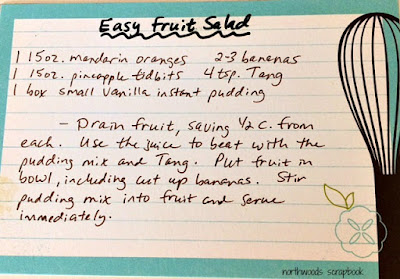 Easy Fruit Salad
1 15oz. mandarin oranges 2-3 bananas
1 15oz. pineapple tidbits 4 tsp. Tang
1 box small vanilla instant pudding
- Drain fruit, saving 1/2 c. from
each. Use the juice to beat with the
pudding mix and Tang. Put fruit in
bowl, including cut up bananas. Stir
pudding mix into fruit and serve
immediately.
northwoods scrapbook